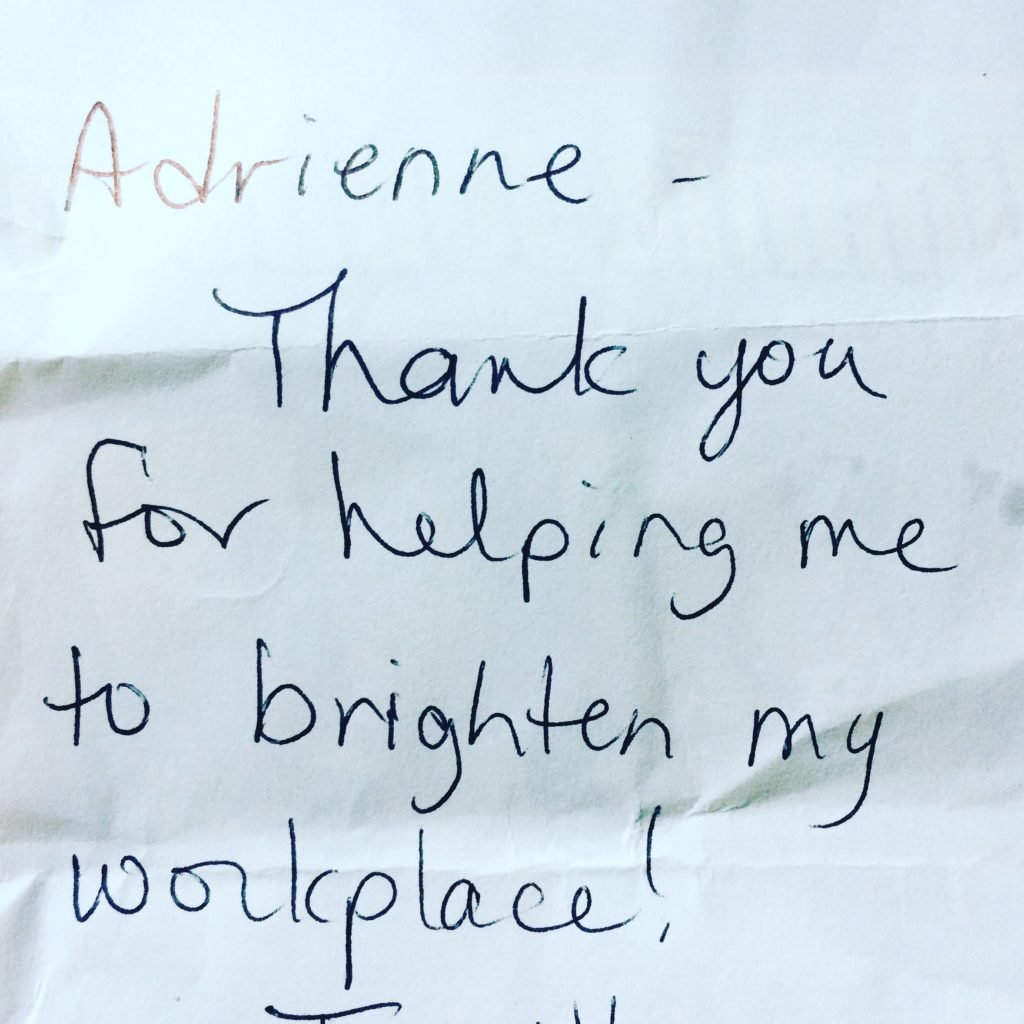 Adrienne -
Thank you
for helping me
to brighten my
workplace!